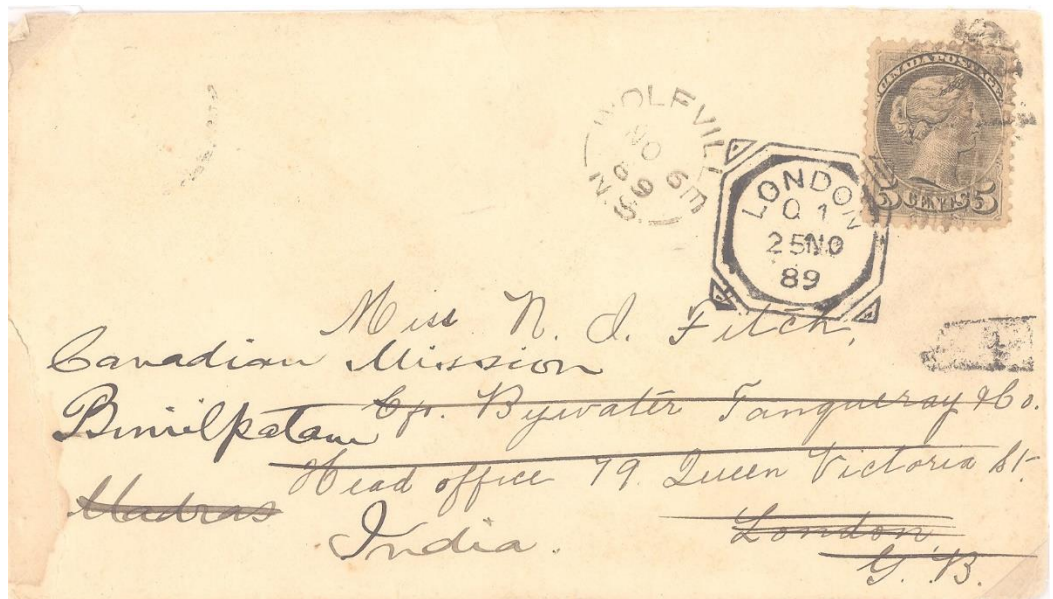 CANADA POSTAGE
5 CENTS 5
WOLFVILL
NO 6 E
89
N.S.
LONDON
Q 1
25 NO
89
Miss N. I. Fitch,
Canadian Mission
Bimilpatam
Bywater Tanqueray & Co.
Head office 79. Queen Victoria St.
Madras
London
India.
G. B.